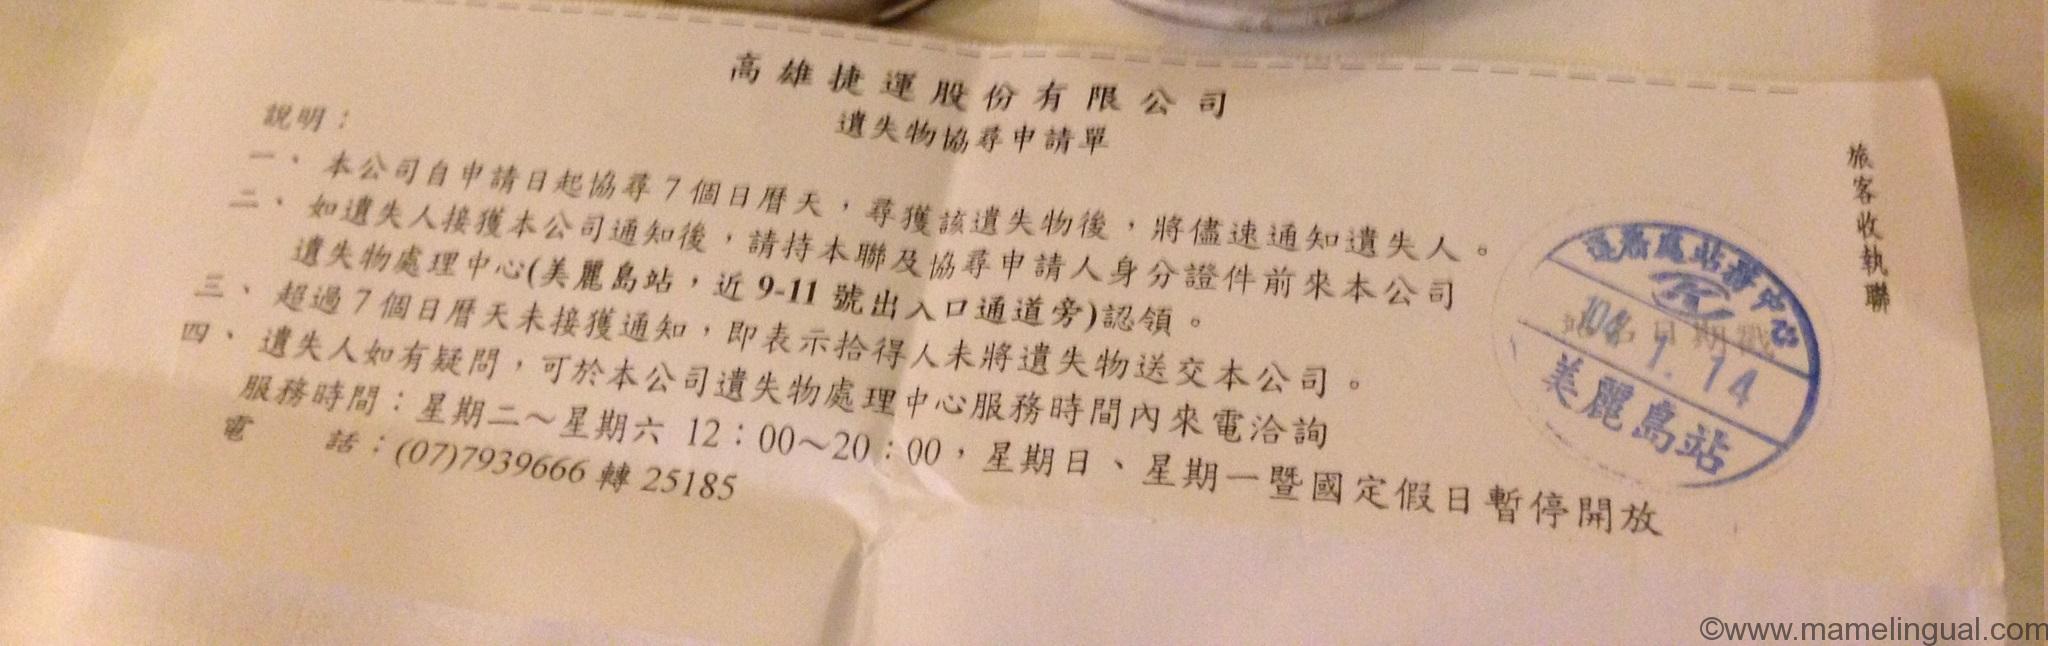 高雄捷運股份有限公司
遺失物協尋申請單
說明：
一、本公司自申請日起協尋7個日曆天，尋獲該遺失物後，將儘速通知遺失人。
二、如遺失人接獲本公司通知後，請持本聯及協尋申請人身分證件前來本公司
遺失物處理中心(美麗島站，近9-11號出入口通道旁)認領。
三、超過7個日曆天未接獲通知，即表示拾得人未將遺失物送交本公司。
四、遺失人如有疑問，可於本公司遺失物處理中心服務時間內來電洽詢
服務時間：星期二～星期六 12：00～20：00，星期日、星期一暨國定假日暫停開放
電　　話：(07)7939666 轉 25185
旅客收執聯
站務中心
104. 1. 14
美麗島站
©www.mamelingual.com